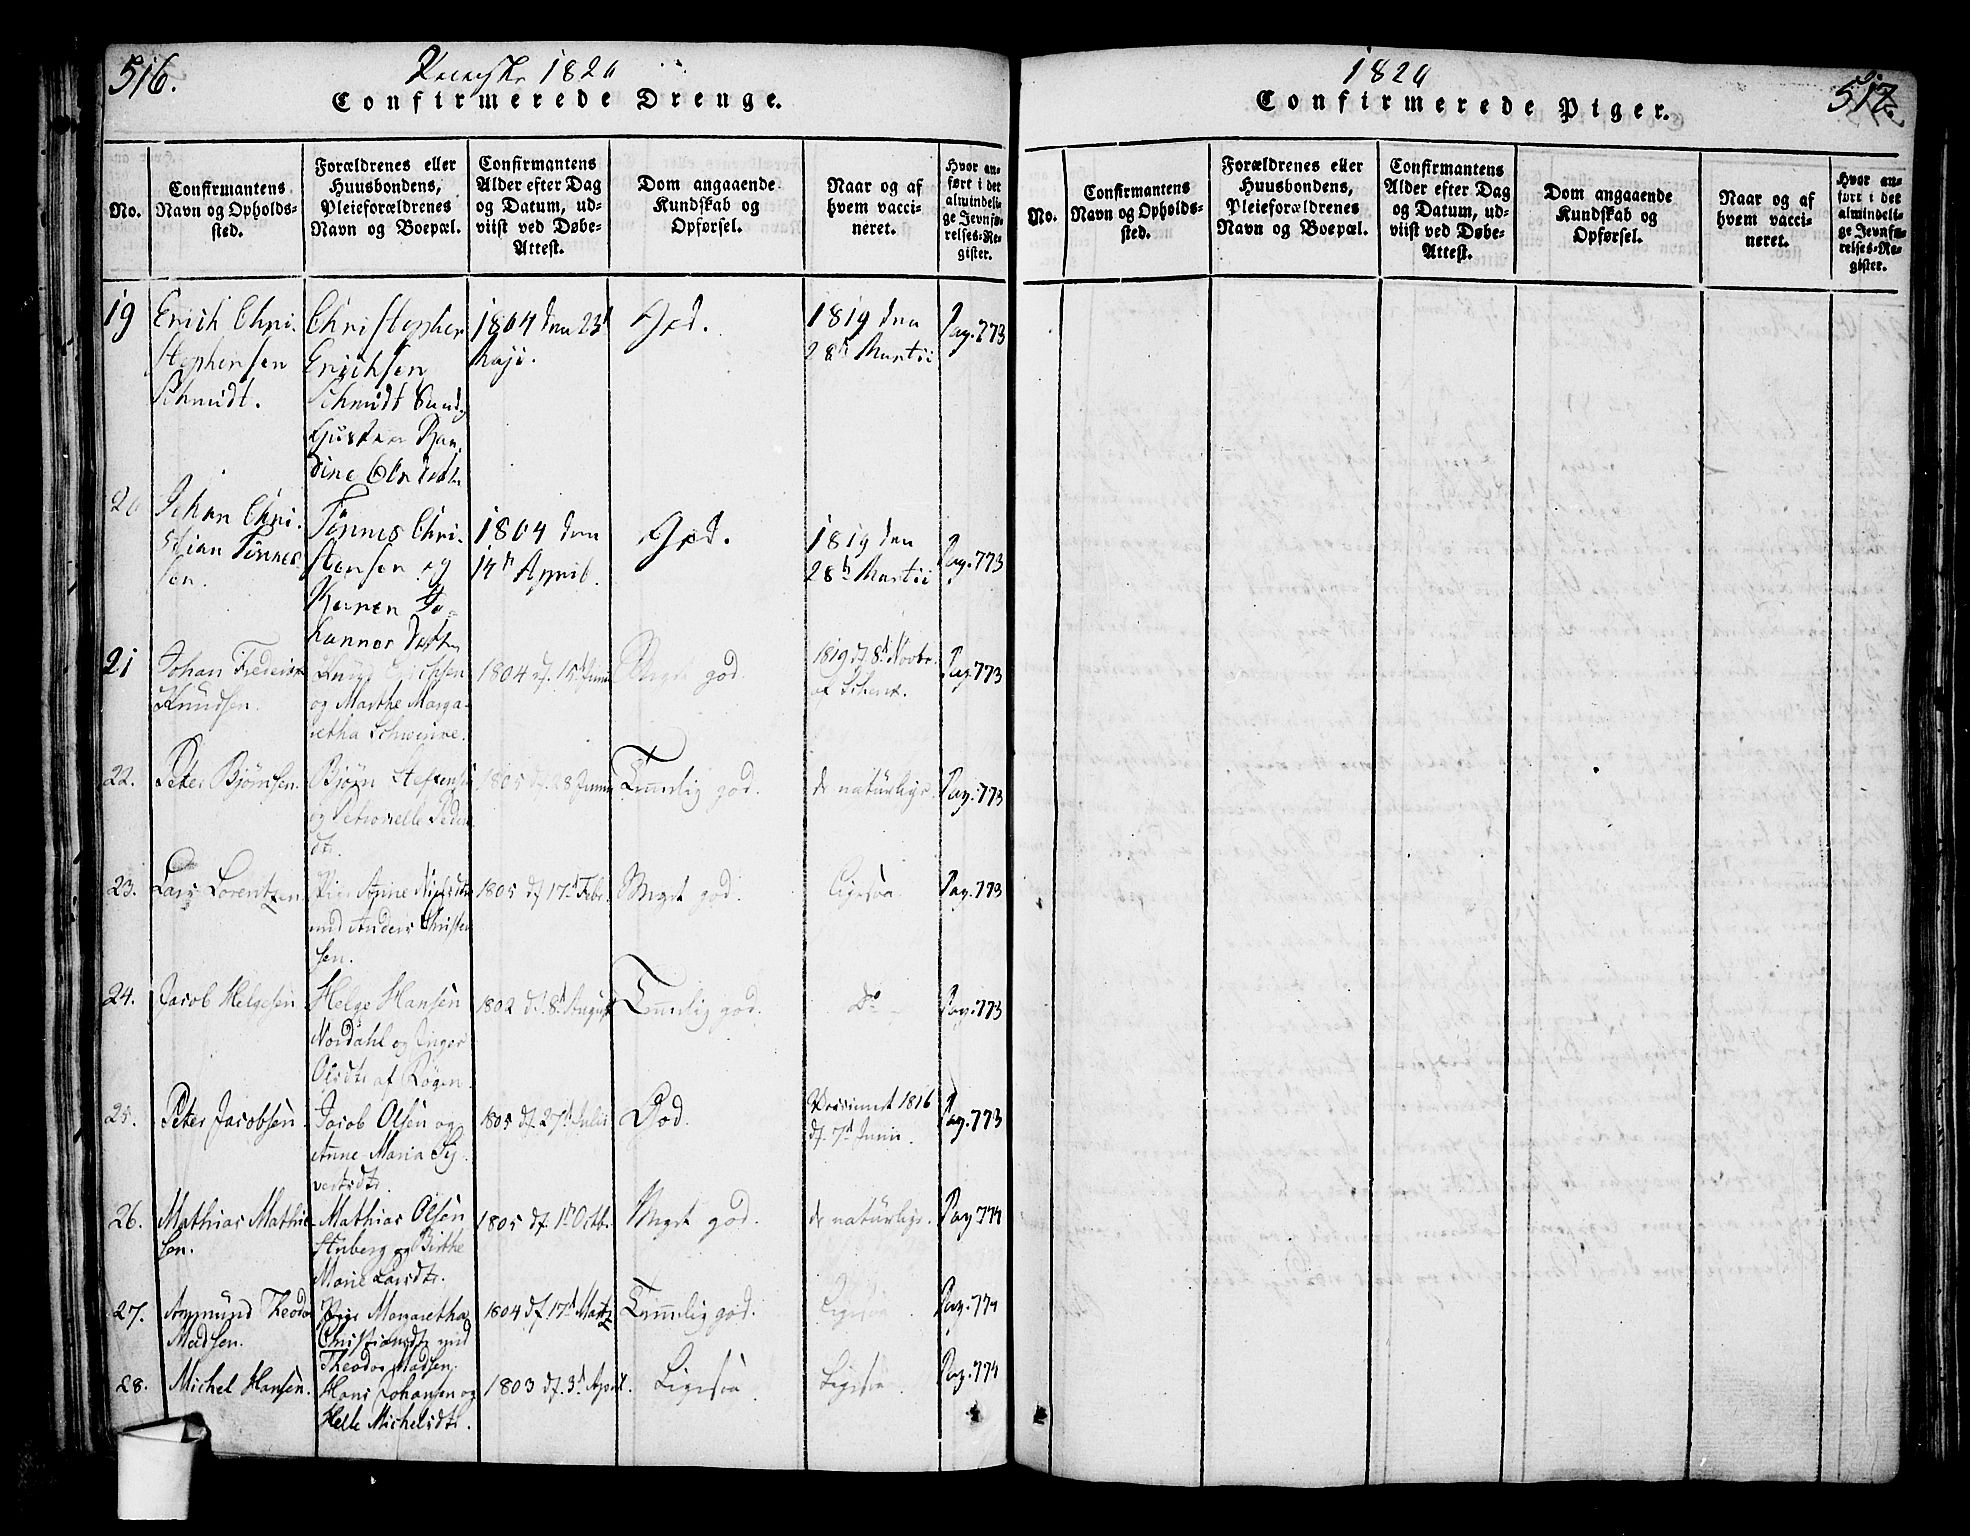 516.
1820
Confirmerede Drenge.
No.
Confirmantens
Navn og Opholds-
sted.
Forældrenes eller
Huusbondens,
Pleieforældrenes
Navn og Boepæl.
Confirmantens
Alder efter Dag
og Datum, ud-
viist ved Døbe-
Attest.
Dom angaaende
Kundskab og
Opførsel.
Naar og af
hvem vacci-
neret.
Hvor an-
ført i det
almindeli-
ge Jevnfø-
relses-Re-
gister.
19
Erich Chri-
stophersen
Schmidt.
Christopher
Erichsen
Schmidt
1804 den 23d
Maji.
God.
1819 den
28de Martii
Pag. 773
20
Johan Chri-
stian Tønnes-
sen.
Tønnes Chri-
stensen og
Karen Jo-
hannes Datter
1804 den
14de April.
God.
1819 den
28de Martii
Pag. 773
21
Johan Frederik
Knudsen.
Knud Erichsen
og Marthe Marga-
retha Schwenne.
1804 d. 15d Juni
Meget god.
1819 d. 8d Novbr.
af Schenz.
Pag. 773
22.
Peter Bjørnsen.
Bjørn Steffensen
og Petronelle Peder
dtr.
1805 d. 28 Juni
Temmelig god.
de naturlige.
Pag. 773
23.
Lars Lorentzen
Anne Nielsdtr
med Anders Christen
sen.
1805 d. 17d Febr.
Meget god.
Ligesaa
Pag. 773
24.
Jacob Helgesen
Helge Hansen
Nordahl og Inger
Olsdtr af Røgen.
1802 d. 8d August
Temmelig god.
Do
Pag. 773
25.
Peter Jacobsen
Jacob Olsen og
Anne Maria Sy-
vertsdtr.
1805 d. 27d Julii
God.
Vaccineret 1816
d. 7d Junii.
Pag. 773
26.
Mathias Mathie-
sen.
Mathias Olsen
Stuberg og Birthe
Marie Larsdtr.
1805 d. 1d Octb.
Meget god.
de naturlige.
Pag 774
27.
Ammund Theodor
Madsen.
Pige Margaretha
Christiansdtr med
Theodor Madsen.
1804 d. 17d Martz
Temmelig god.
Ligesaa
Pag. 774
28.
Michel Hansen.
Hans Johansen og
Helle Michelsdtr.
1803 d. 3d April.
Ligesaa
Ligesaa.
Pag. 774
1820
517.
Confirmerede Piger.
No.
Confirmantens
Navn og Opholds-
sted.
Forældrenes eller
Huusbondens,
Pleieforældrenes
Navn og Boepæl.
Confirmantens
Alder efter Dag
og Datum, ud-
viist ved Døbe-
Attest.
Dom angaaende
Kundskab og
Opførsel.
Naar og af
hvem vacci-
neret.
Hvor an-
ført i det
almindeli-
ge Jevnfø-
relses-Re-
gister.